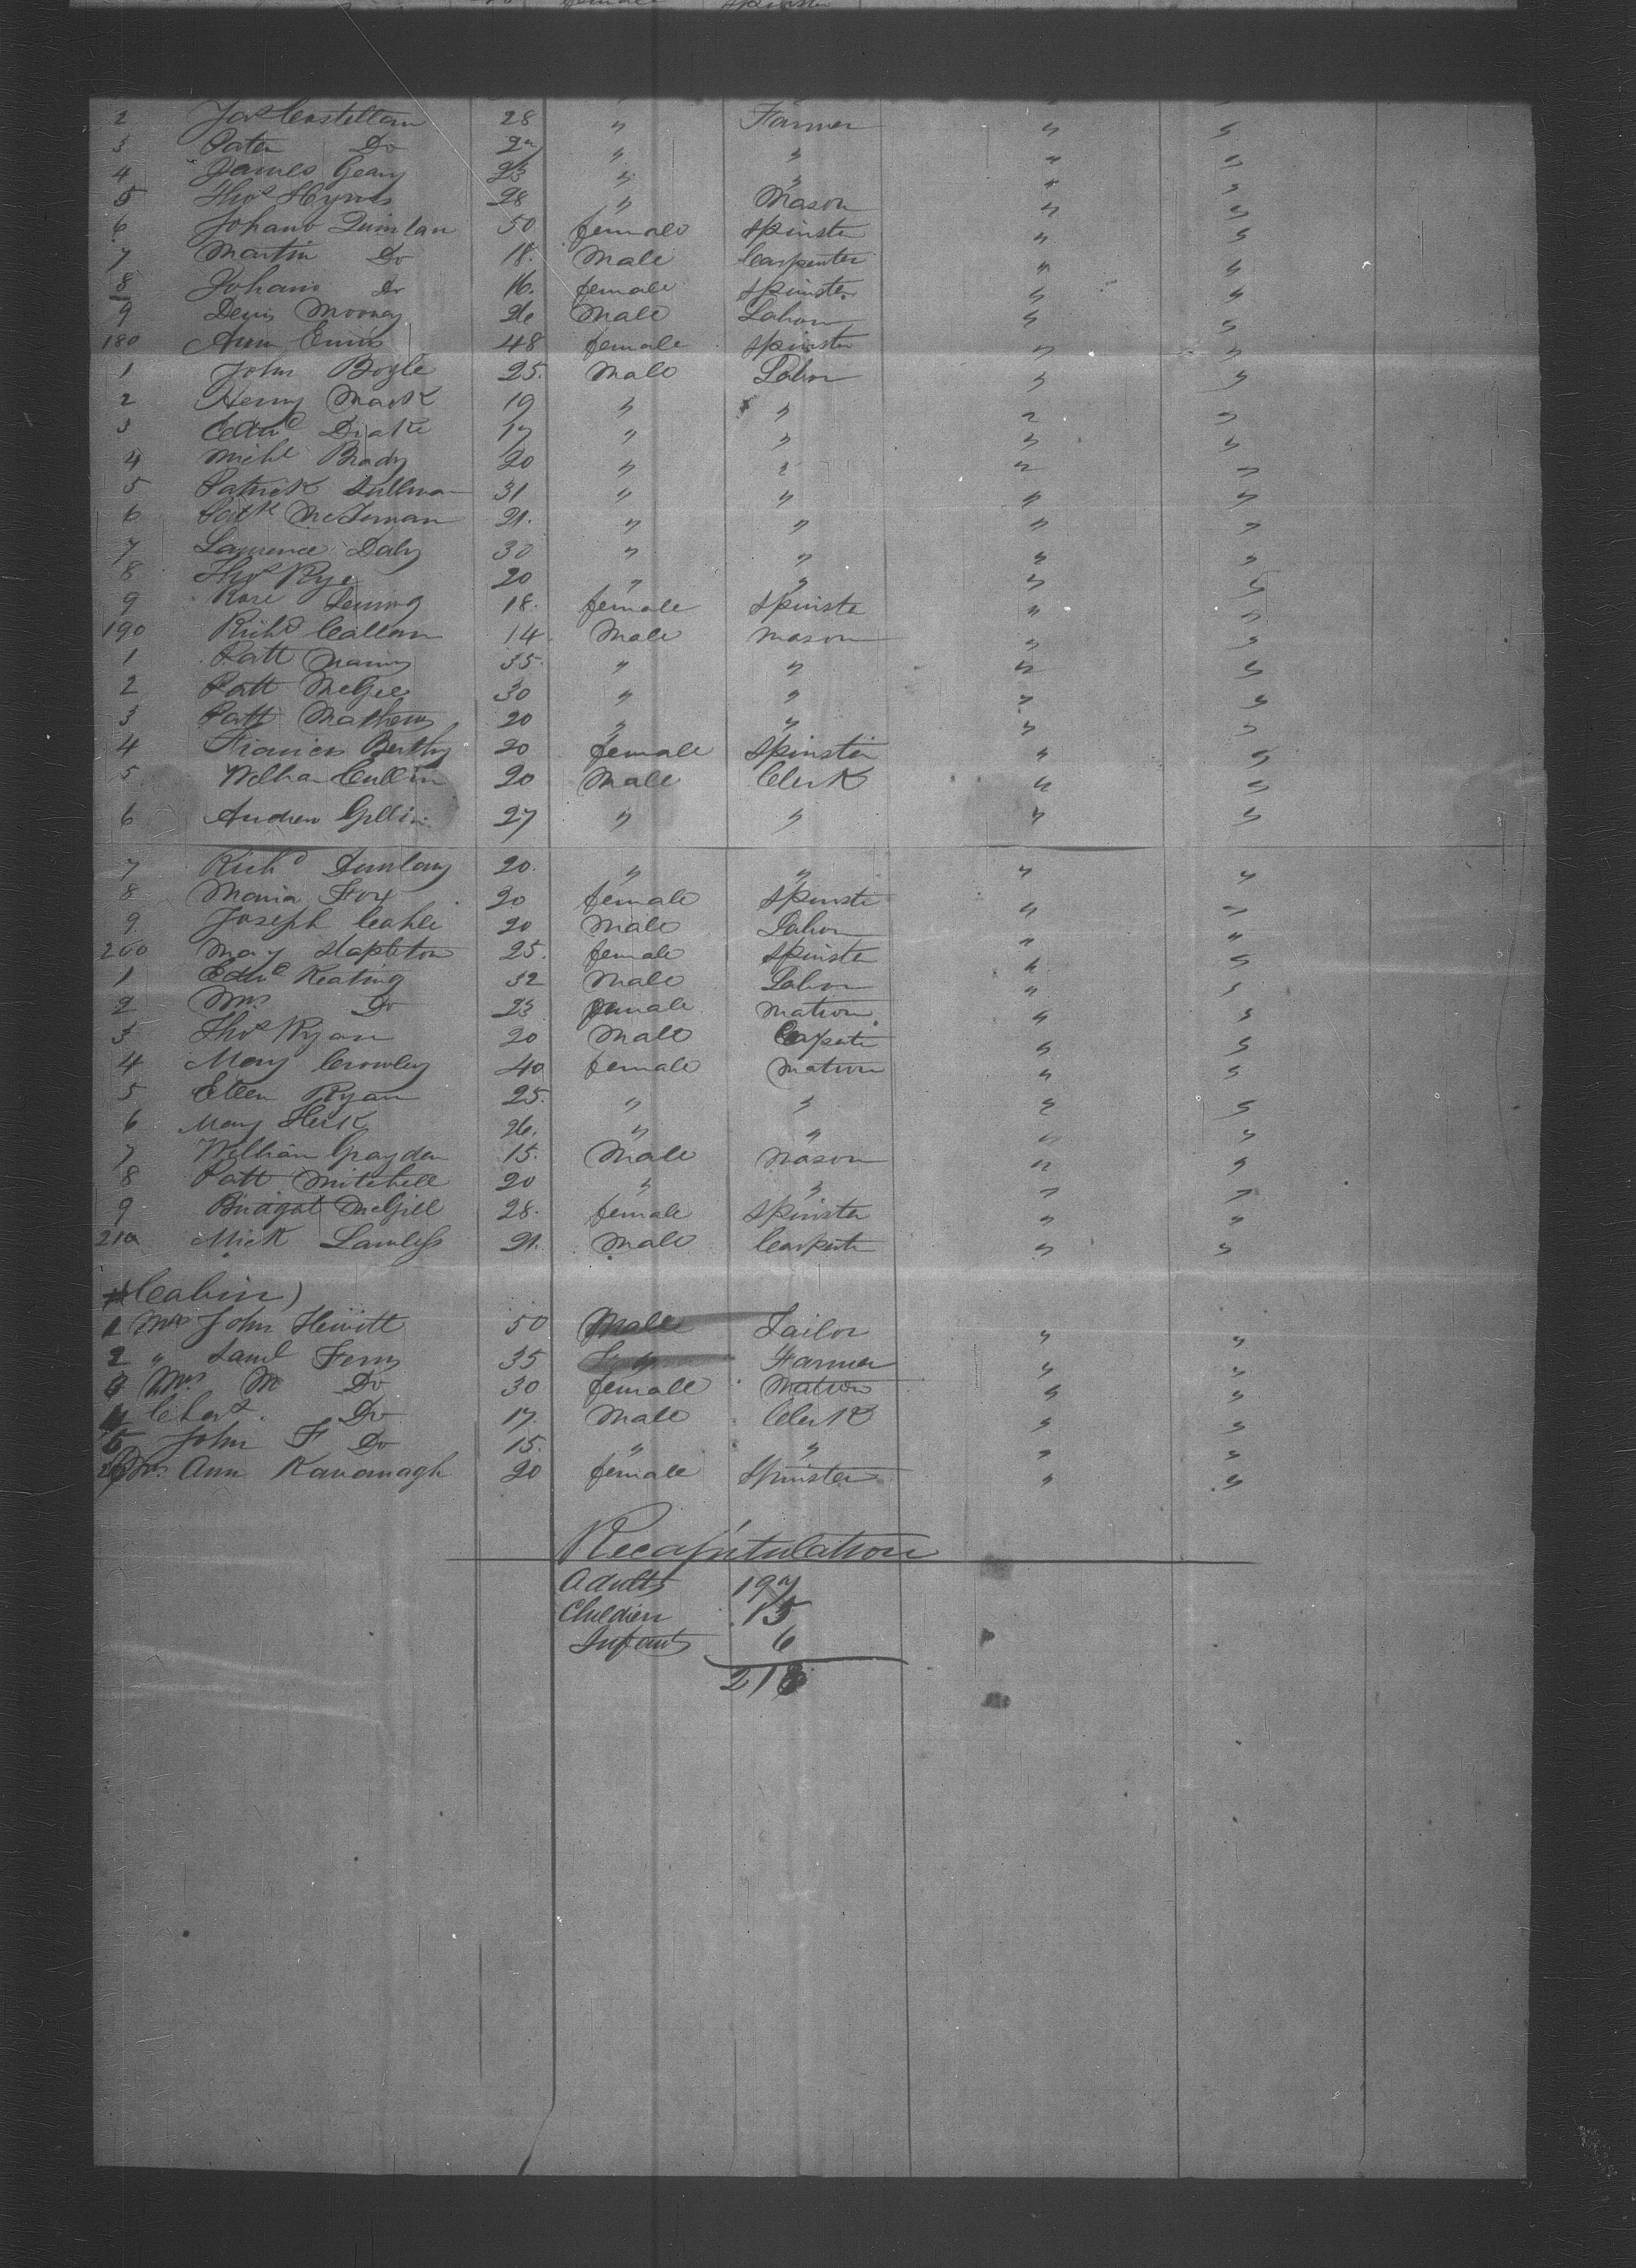 female Spinster
2 Jas Costellan 28 " Farmer " "
3 Peter Do " " " "
4 James Geary 23 " " " "
5 Thos Hynes 28 " Mason " "
6 Johano Quinlan 50 female Spinster " "
7 Martin Do 18. Male Carpenter " "
8 Johano Do 16. female Spinster " "
9 Denis Mooney 26 Male Labour " "
180 Ann Ennis 48 female Spinster " "
1 John Boyle 25. Male Labor " "
2 Henry Mack 19 " " " "
3 Edwd Drake 17 " " " "
4 Michl Brady 20 " " " "
5 Patrick Sullivan 31 " " " "
6 Patk McTernan 21. " " " "
7 Lawrence Daly 30 " " " "
8 Thos Rye 20 " " " "
9 Rose 18. female Spinste " "
190 Richd Callan 14 Male Mason " "
1 Patt 35. " " " "
2 Patt McGee 30 " " " "
3 Patt Mathews 20 " " " "
4 20 female Spinster " "
5 William Cullin 20 Male Clerk " "
6 Andrew 27 " " " "
7 Richd 20. " " " "
8 Maria Fox 20 female Spinste " "
9 Joseph 20 Male Labour " "
200 Mary Stapleton 25. female Spinster " "
1 Edwd Keating 32 Male Labour " "
2 Mrs Do 23 female Matron " "
3 Thos Ryan 20 Male " "
4 Mary Crowley 40 female Matron " "
5 Ellen Ryan 25. " " " "
6 Mary 26. " " " "
7 William Grayden 15. Male Mason " "
8 Patt Mitchell 20 " " " "
9 Bridget McGill 28. female Spinster " "
210 Mick Lawless 21. Male Carpente " "
Cabin)
1 Mr John Hewitt 50 Male Tailor " "
2 " Saml Ferry 35 Farmer " "
3 Mrs M Do 30 female Matron " "
4 Chas. Do 17. Male Clerk " "
5 John F Do 15. " " " "
Ann Kavanagh 20 female Spinster " "
Recapitulation
Adults 197
Children 15
Infants 6
218